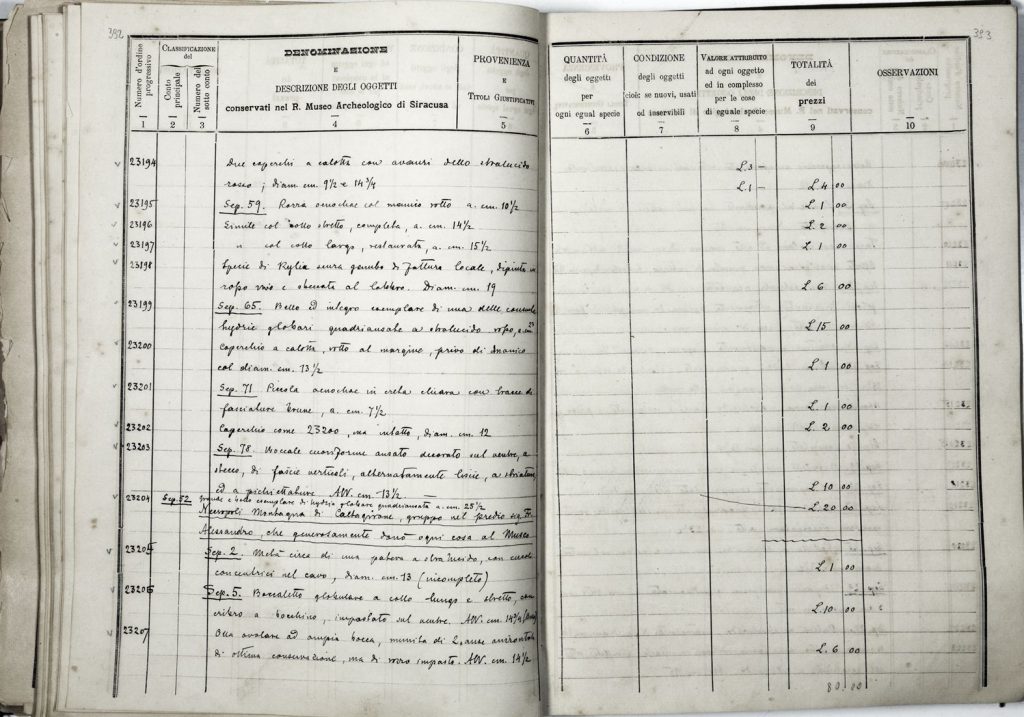 392
393
Numero d'ordine progressivo
CLASSIFICAZIONE del
Conto principale
Numero del sotto conto
DENOMINAZIONE
E
DESCRIZIONE DEGLI OGGETTI
conservati nel R. Museo Archeologico di Siracusa
PROVENIENZA
E
TITOLI GIUSTIFICATIVI
QUANTITÀ
degli oggetti
per
ogni egual specie
CONDIZIONE
degli oggetti
cioè: se nuovi, usati
od inservibili
VALORE ATTRIBUITO
ad ogni oggetto
ed in complesso
per le cose
di eguale specie
TOTALITÀ
dei
prezzi
OSSERVAZIONI
1 2 3 4 5 6 7 8 9 10
23194 Due coperchi a calotta con avanzi dello stralucido L.3 –
rosso; diam. cm. 9½ e 14¾ L.1 – L.4 00
23195 Sep. 59. Rozza oenochoe col manico rotto a. cm. 10½ L.1 00
23196 Simile col collo stretto, completa, a. cm. 14½ L.2 00
23197 " col collo largo, restaurata, a. cm. 15½ L.1 00
23198 Specie di Kylix senza gambo di fattura locale, dipinta in
rosso vivo e Diam. cm. 19 L.6 00
23199 Sep. 65. Bello ed integro esemplare di una delle consuete
hydrie globari quadriansate a stralucido rosso, a. cm. 23 L.15 00
23200 Coperchio a calotta, rotto al margine, privo di manico
col diam. cm. 13½ L.1 00
23201 Sep. 71 Piccola oenochoe in creta chiara con tracce di
fasciature brune, a. cm. 7½ L.1 00
23202 Coperchio come 23200, ma intatto, diam. cm. 12 L.2 00
23203 Sep. 78. Boccale cuoriforme ansato decorato sul ventre, a
stecco, di fascie verticali, alternatamente liscie, a striature
ed a picchiettature Alt. cm. 13½ — L.10 00
23204 Sep. 52 grande e bello esemplare di hydria globare quadriansata a. cm. 25½ L.20 00
Necropoli Montagna di Caltagirone, gruppo nel predio sig.
Alessandro, che generosamente donò ogni cosa al Museo
23205 Sep. 2. Metà circa di una patera a stralucido, con cerchi
concentrici nel cavo, diam. cm. 13 (incompleto) L.1 00
23206 Sep. 5. Boccaletto globulare a collo lungo e stretto, con
a bocchino, impostato sul ventre. Alt. cm. 14¾ L.10 00
23207 Olla ovolare ad ampia bocca, munita di 2 anse
di ottima conservazione, ma di rozzo impasto. Alt. cm. 14½ L.6 00
80.00